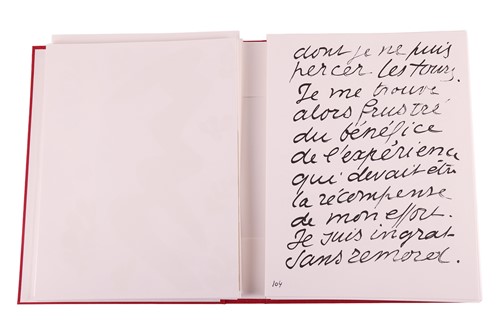 dont je ne puis
percer les tours.
Je me trouve
alors frustré
du bénéfice
de l'expérience
qui devait être
la récompense
de mon effort.
Je suis ingrat
sans remord.
104